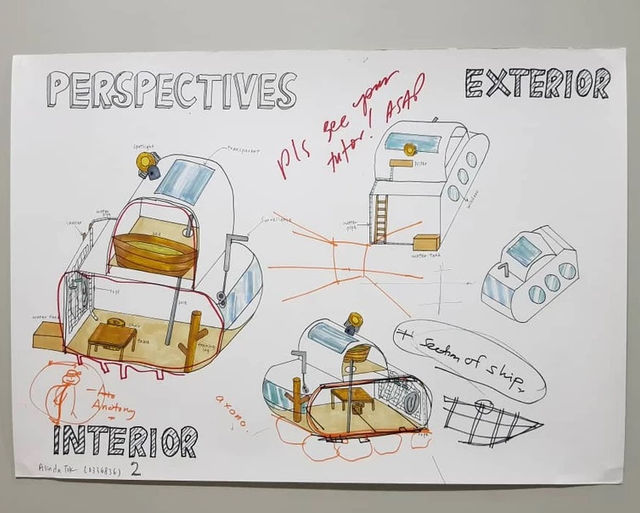 PERSPECTIVES
EXTERIOR
pls see your
tutor! ASAP
spotlight
transparent
bed
water
pipe
surveillance
water tank
chair
table
training
log
window
water
pipe
water tank
+ Section of ship
Anatomy
axono.
INTERIOR
2